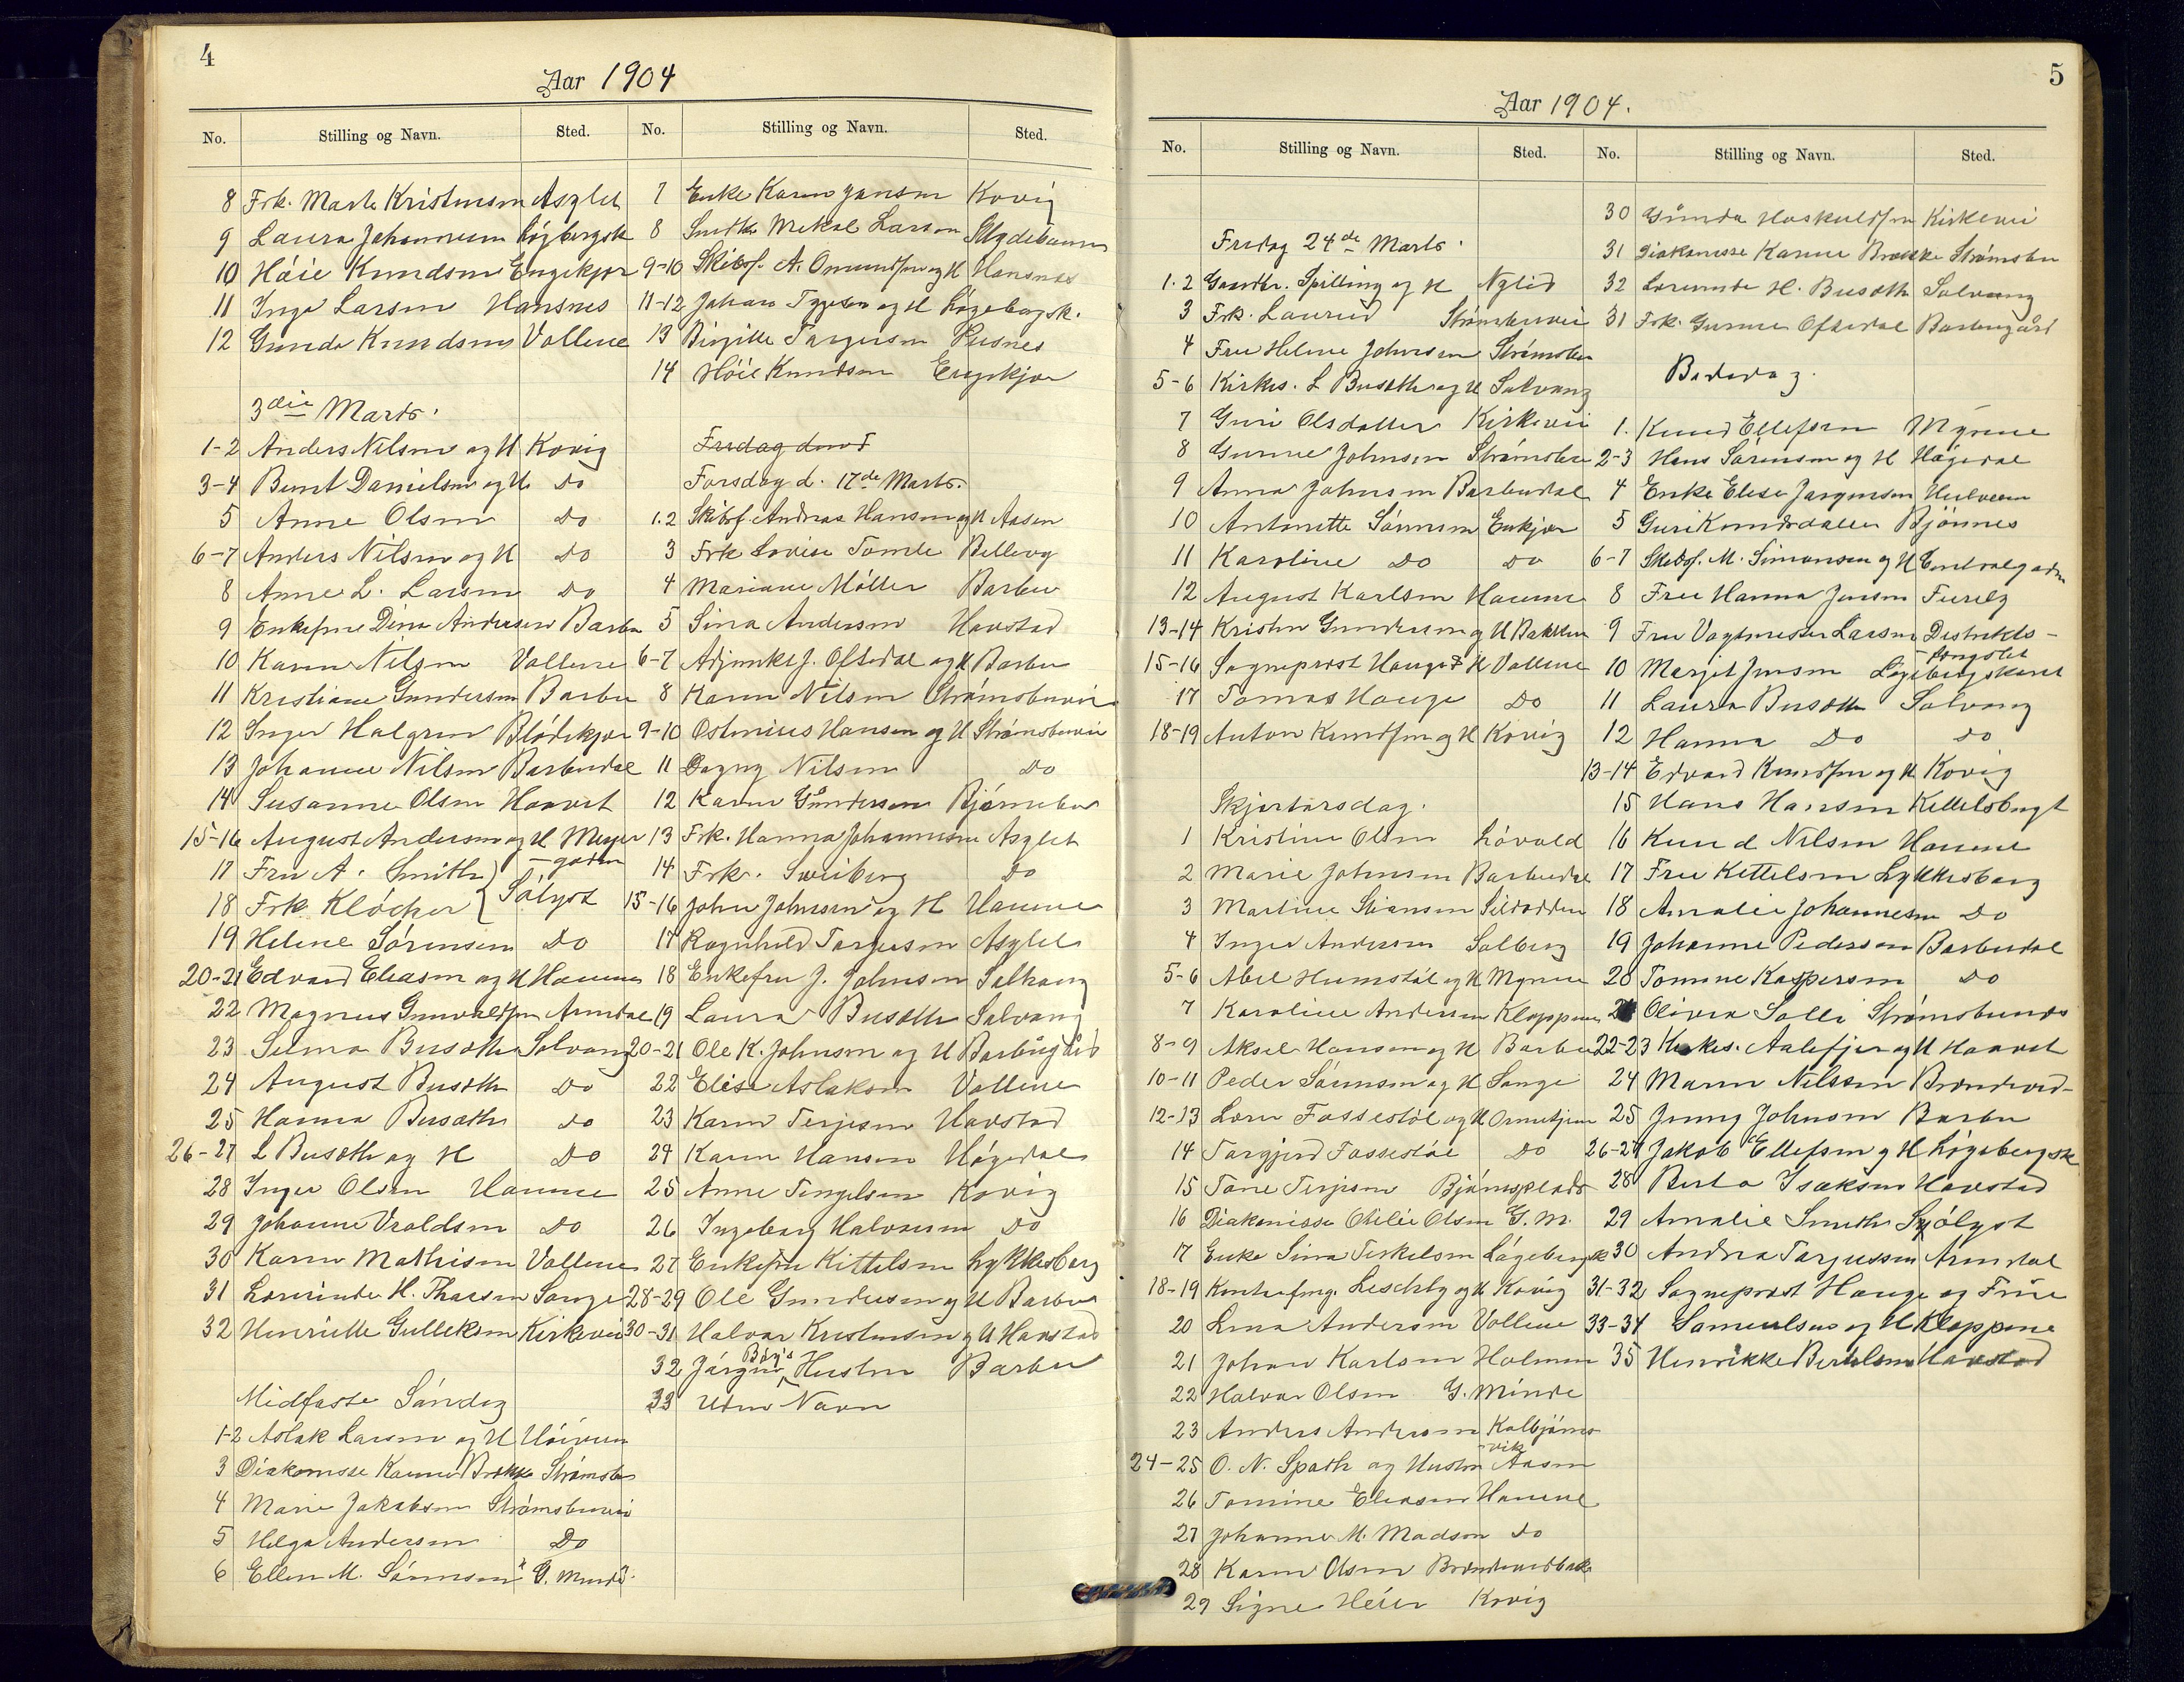 4
Aar 1904
No. Stilling og Navn. Sted.
8 Frk. Marte Kristensen Asylet
9 Laura Johannesen Løgbergsk
10 Høie Knudsen Engekjær
11 Inga Larsen Hansnes
12 Gunda Knudsen Vollene
3die Marts.
1-2 Anders Nilsen og H Kovig
3-4 Bernt Danielsen og H Do
5 Anne Olsen Do
6-7 Anders Nilsen og H Do
8 Anne L. Larsen Do
9 Enkefrue Dina Andersen Barbu
10 Karen Nilsen Vollene
11 Kristiane Gundersen Barbu
12 Inger Halgren Blødekjær
13 Johanne Nilsen Barbudal
14 Susanne Olsen Haavet
15-16 August Andersen og H Meyer
-gaden
17 Fru A. Smith
18 Frk Kløcker Sølyst
19 Helene Sørensen Do
20-21 Edvard Eliasen og H Havene
22 Magnus Gunvaldsen Arendal
23 Selma Busæth Solvang
24 August Busæth Do
25 Hanna Busæth Do
26-27 L Busæth og H Do
28 Inger Olsen Havene
29 Johanne Vraldsen Do
30 Karen Mathisen Vollene
31 H. Thorsen Songe
32 Henriette Gulleksen Kirkevei
Midfaste Søndag
1-2 Aslak Larsen og H
3 Diakonisse Karine Brokke Strømsbu
4 Marie Jakobsen Strømsbuvei
5 Helga Andersen Do
6 Ellen M. Sørensen G. Minde
No. Stilling og Navn. Sted.
7 Enke Karen Jansen Kovig
8 Larsen
9-10 Skibsf. A. Omundsen og H Hansnes
11-12 Johan og H Løgebergsk.
13 Birgitte Torgersen
14 Høie Knudsen Engekjær
Fredag den
Torsdag d. 17de Marts.
1.2 Skibsf Andreas Hansen og H Aasen
3 Frk Lovise Tomle Bellevg
4 Mariane Møller Barbu
5 Sina Andersen Havstad
6-7 Adjunkt J. Oftedal og H Barbu
8 Karen Nilsen Strømsbuvei
9-10 Osteneius Hansen og H Strømsbuvei
11 Dagny Nilsen Do
12 Karen Gundersen Bjørnebo
13 Frk. Hanna Johannesen Asylet
14 Frk. Do
15-16 John Johnsen og H Havene
17 Ragnhild Torgersen Asylet
18 Enkefru J. Johnsen Solhaug
19 Laura Busæth Solvang
20-21 Ole K. Johnsen og H Barbugård
22 Elise Aslaksen Vollene
23 Karen Terjesen Havstad
24 Karen Hansen Høgedal
25 Anne Tengelsen Kovig
26 Ingeborg Halvorsen Do
27 Enkefru Kittelsen Lykkesborg
28-29 Ole Gundersen og H Barbu
30-31 Halvor Kristensen og H Havstad
32 Jørgen Børs Hustru Barbu
33 Uden Navn
5
Aar 1904.
No. Stilling og Navn. Sted.
Fredag 24de Marts.
1.2 Gaardbr. Spilling og H Nylid
3 Frk. Laurid Strømsbuvei
4 Fru Helene Johnsen Strømsbu
5-6 Kirkes. L Busæth og H Solvang
7 Guri Olsdatter Kirkevei
8 Gunne Johnsen Strømsbu
9 Anna Johnsen Barbudal
10 Antonette Sørensen Enkjær
11 Karoline Do Do
12 August Karlsen Havene
13-14 Kristen Gundersen og H Bakken
15-16 Sogneprost Hauge & H Vollene
17 Tomas Hauge Do
18-19 Anton Knudsen og H Kovig
Skjærtorsdag.
1 Kristine Olsen Løvold
2 Marie Johnsen Barbudal
3 Martine Stiansen Sildodden
4 Inger Andersen Solberg
5-6 Abel Humstøl og H Myrene
7 Karoline Andersen Kloppene
8-9 Aksel Hansen og H Barbu
10-11 Peder Sørensen og H Songe
12-13 Lars Fossestøl og H Ormetjern
14 Torgjerd Fossestøl Do
15 Tone Terjesen Bjørnsplads
16 Diakonisse Otilie Olsen G. M.
17 Enke Sina Terkelsen Løgebergsk
18-19 og H Kovig
20 Lina Andersen Vollene
21 Johan Karlsen Holmen
22 Halvor Olsen G. Minde
23 Anders Andersen Kolbjørns
-vik
24-25 O. N. Spath og Hustru Aasen
26 Tomine Eliasen Havene
27 Johanne M. Madsen Do
28 Karen Olsen
29 Signe Heier Kovig
No. Stilling og Navn. Sted.
30 Gunda Hoskuldsen Kirkevei
31 Diakonisse Karine Brokke Strømsbu
32 H. Busæth Solvang
31 Frk. Gunne Oftedal Barbugård
Bededag.
1. Knud Ellefsen Myrene
2-3 Hans Sørensen og H Høgedal
4 Enke Elise Jørgensen
5 Guri Knudsdatter Bjønnes
6-7 Skibsf. M. Simonsen og H Centralgaden
8 Fru Hanna Jensen Furelz
9 Fru Vagtmester Larsen Distrikts-
-fængslet
10 Margit Jensen Løgebergskaret
11 Laura Busæth Solvang
12 Hanna Do Do
13-14 Edvard Knudsen og H Kovig
15 Hans Hansen Kittelsbugt
16 Knud Nilsen Havene
17 Fru Kettelsen Lykkesborg
18 Amalie Johannesen Do
19 Johanne Pedersen Barbudal
20 Tomine Kaspersen Do
21 Olivia Salli Strømsbunes
22-23 Kirkes. Aalefjær og H Haavet
24 Maren Nilssen
25 Jenny Johnsen Barbu
26-27 Jakob Ellefsen og H Løgebergsk
28 Berta Isaksen Havstad
29 Amalie Smith Sjølyst
30 Andrea Torjussen Arendal
31-32 Sogneprost Hauge og Frue
33-34 Samuelsen og H Kloppene
35 Henrikke Bertelsen Havstad